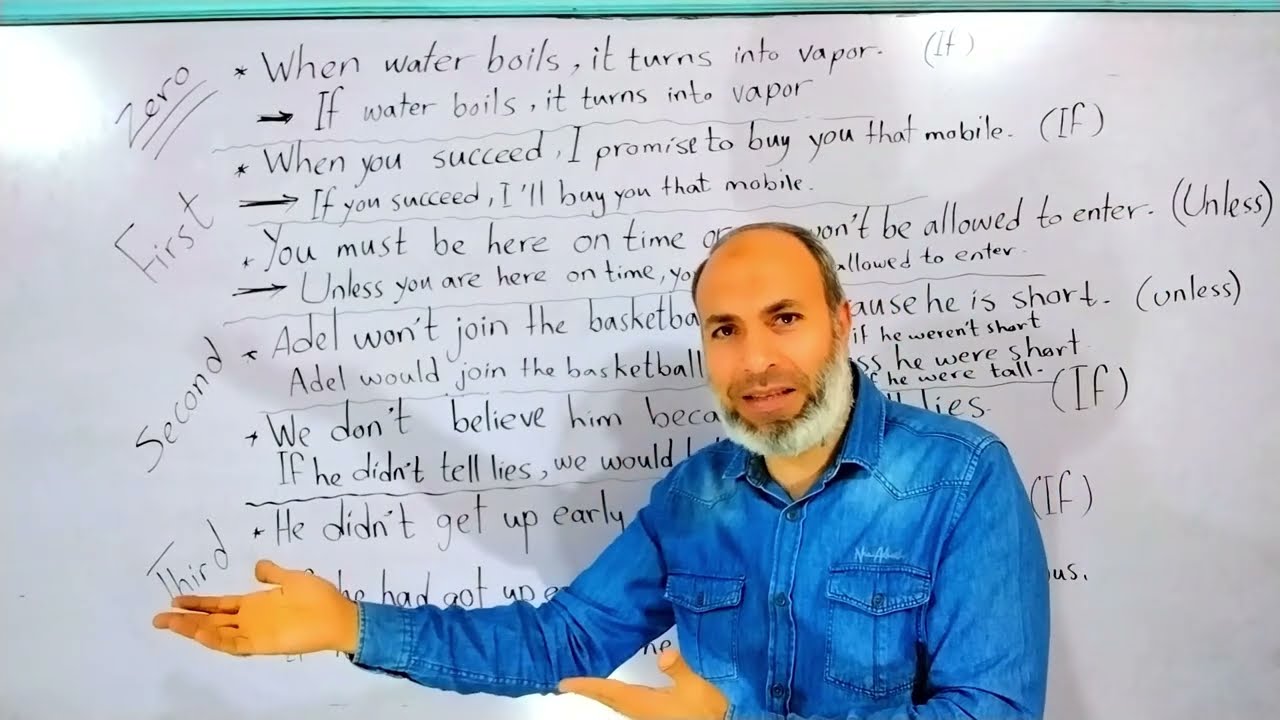 Zero
* When water boils, it turns into vapor. (If)
→ If water boils, it turns into vapor
First
* When you succeed, I promise to buy you that mobile. (If)
→ If you succeed, I'll buy you that mobile.
* You must be here on time or won't be allowed to enter. (Unless)
→ Unless you are here on time, allowed to enter.
Second
* Adel won't join the he is short. (unless)
if he weren't short
Adel would join the basketball he were short
he were tall.
* We don't believe him lies. (If)
If he didn't tell lies, we would
Third
* He didn't get up early (If)
he had got up